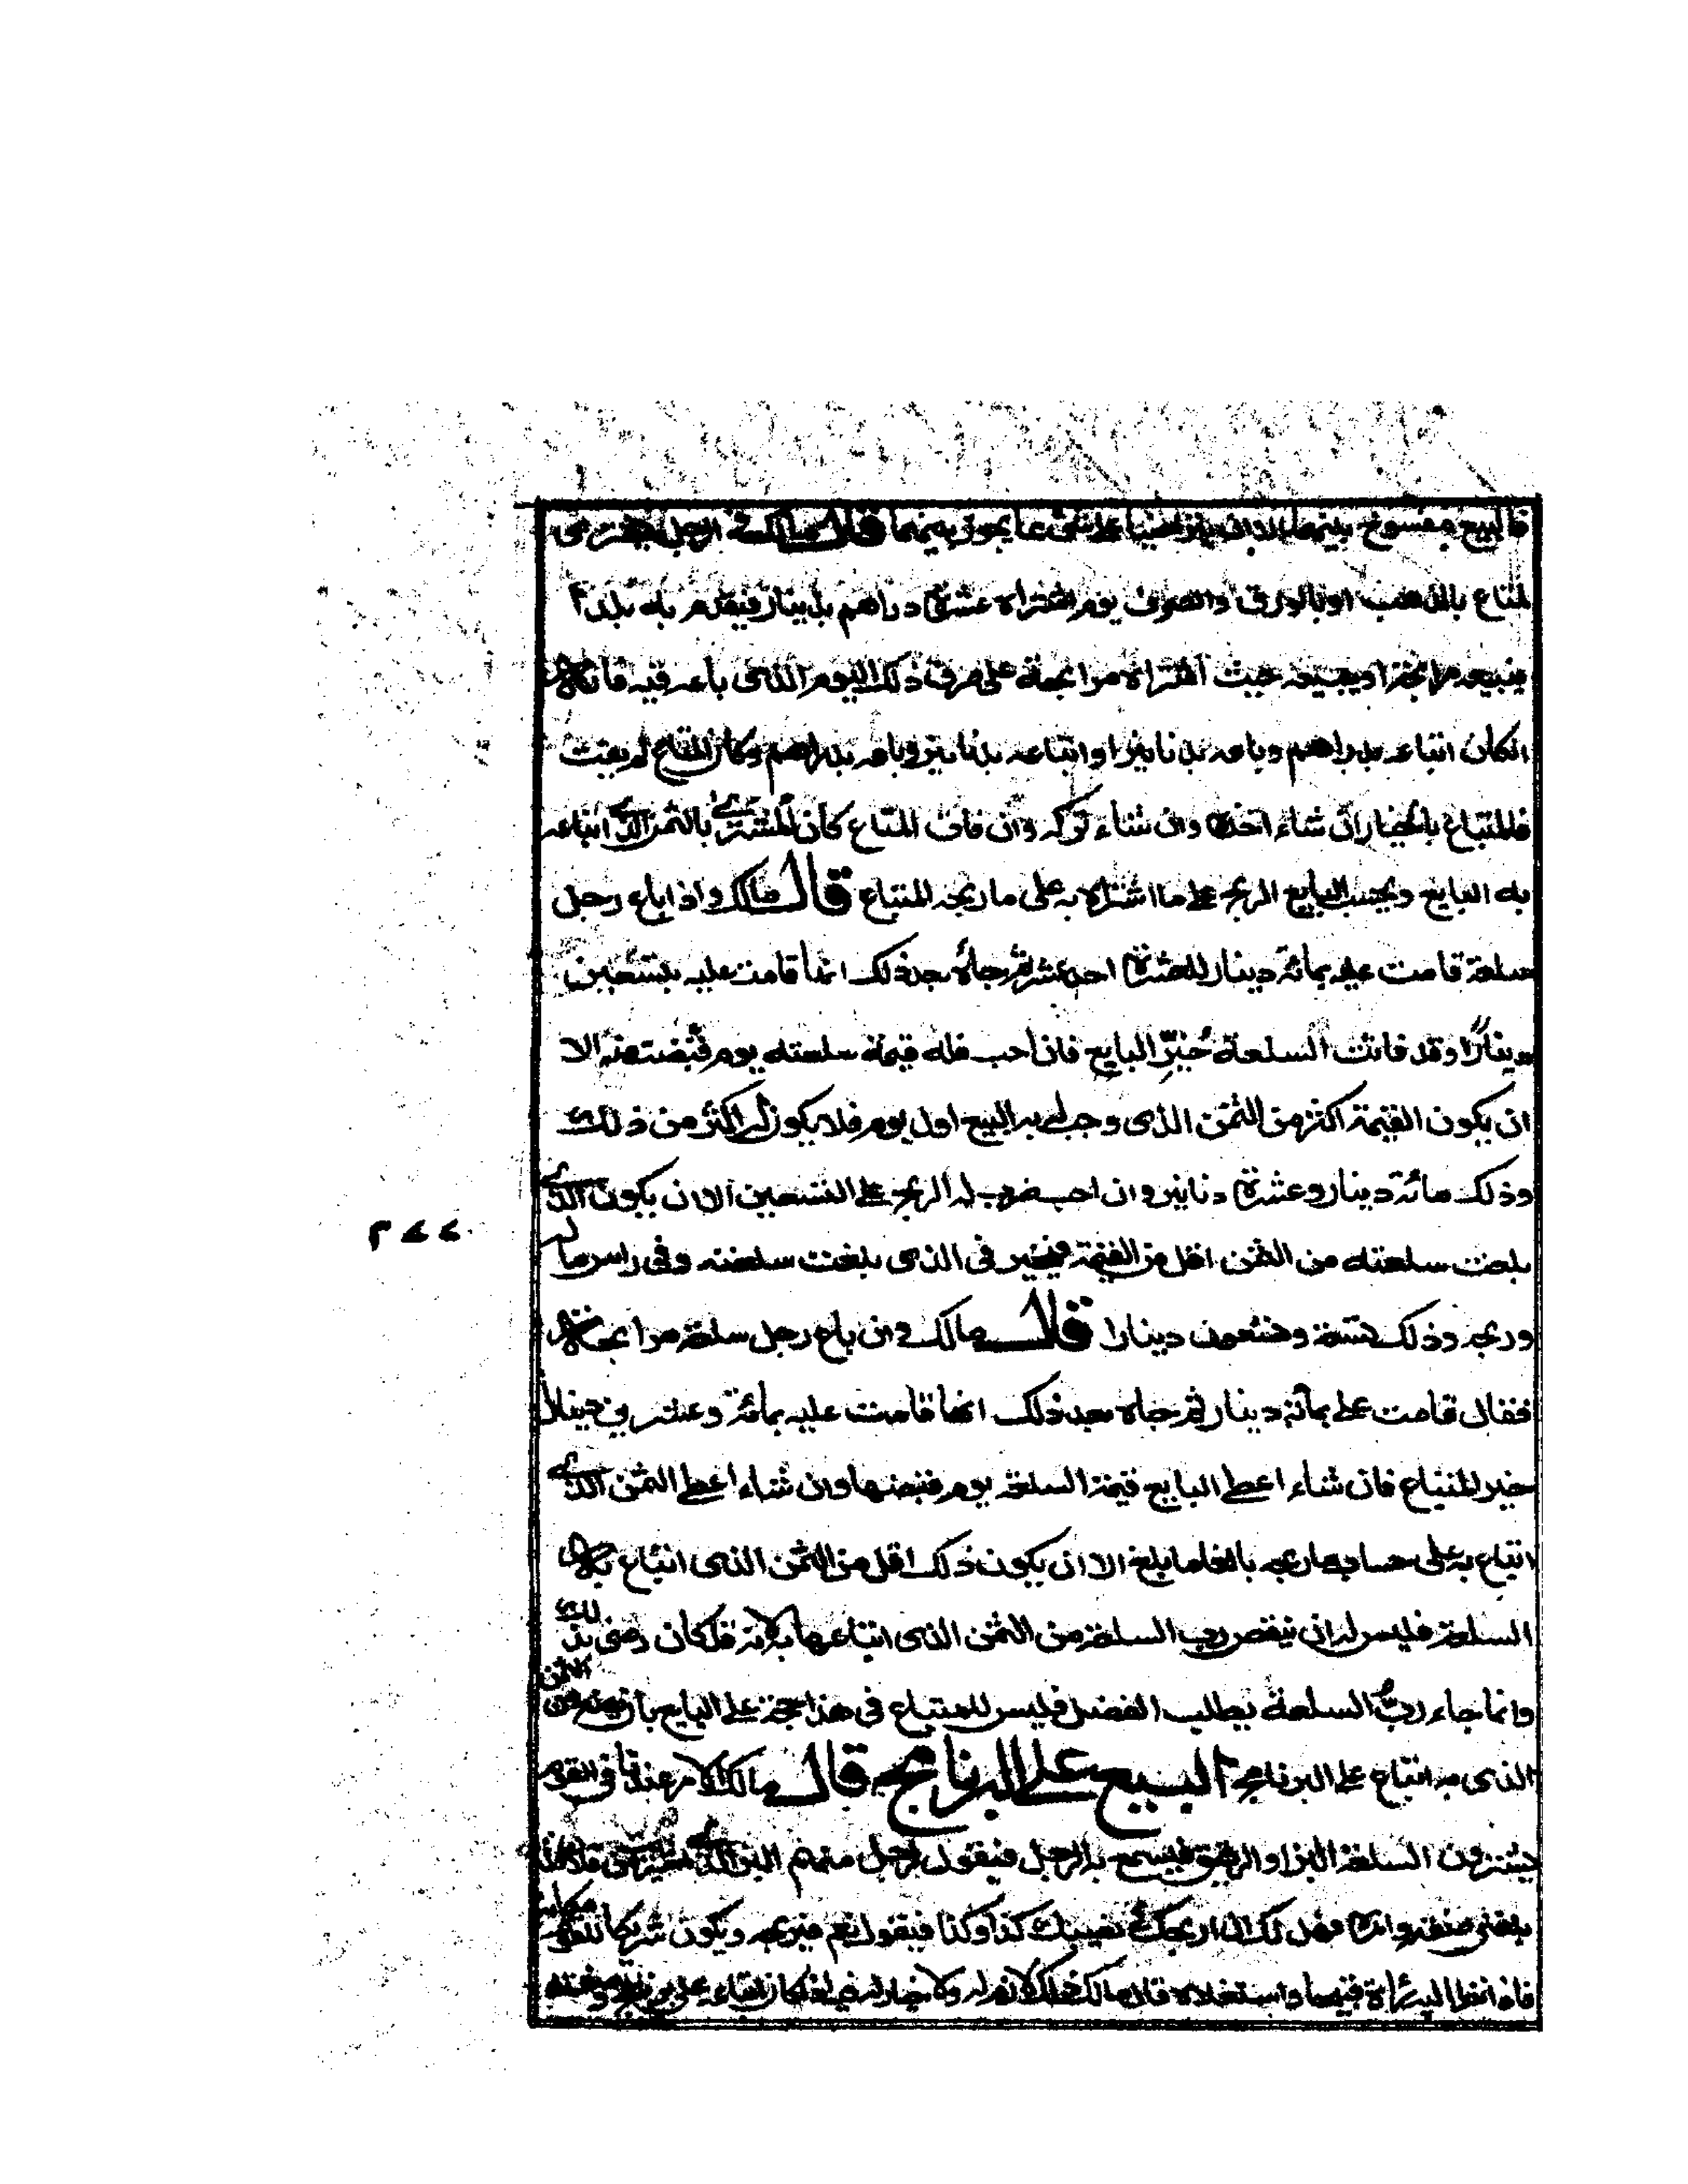 فالبيع مفسوخ بينهما الا ان يتراضيا على شئ مما يجوز بينهما قال مالك في الرجل يشترى
المتاع بالذهب او بالورق والصرف يوم اشتراه عشرة دراهم بدينار فيقدم به بلدا
فيبيعه مرابحة او يبيعه حيث اشتراه مرابحة على صرف ذلك اليوم الذى باعه فيه فانه
ان كان ابتاعه بدراهم وباعه بدنانير او ابتاعه بدنانير وباعه بدراهم وكان المتاع لم يفت
فالمبتاع بالخيار ان شاء اخذه وان شاء تركه وان فات المتاع كان للمشترى بالثمن الذى ابتاعه
به البايع ويحسب للبايع الربح على ما اشتراه به على ما ربحه المبتاع قال مالك واذا باع رجل
سلعة قامت عليه بمائة دينار للعشرة احد عشر ثم جاءه بعد ذلك انها قامت عليه بتسعين
دينارا وقد فاتت السلعة خير البايع فان احب فله قيمة سلعته يوم قبضت منه الا
ان يكون القيمة اكثر من الثمن الذى وجب له به البيع اول يوم فلا يكون له اكثر من ذلك
وذلك مائة دينار وعشرة دنانير وان احب ضرب له الربح على التسعين الا ان يكون الذى
بلغت سلعته من الثمن اقل من القيمة فيخير فى الذى بلغت سلعته وفى راس ماله
وربحه وذلك تسعة وتسعون دينارا قال مالك وان باع رجل سلعة مرابحة
فقال قامت على بمائة دينار ثم جاه بعد ذلك انها قامت عليه بمائة وعشرين دينارا
خير المبتاع فان شاء اعطى البايع قيمة السلعة يوم قبضها وان شاء اعطى الثمن الذى
ابتاع به على حساب ما ربحه بالغا ما بلغ الا ان يكون ذلك اقل من الثمن الذى ابتاع به
السلعة فليس له ان ينقص رب السلعة من الثمن الذى ابتاعها به لانه قد كان رضى بذلك
وانما جاء رب السلعة يطلب الفضل فليس للمبتاع فى هذا حجة على البايع بان يضع من الثمن
الذى به ابتاع على البرنامج البيع على البرنامج قال مالك الامر عندنا فى القوم
يشترون السلعة البز او الرقيق فيسمع به الرجل فيقول لرجل منهم البز الذى اشتريت
بلغنى صفته وامره فهل لك ان اربحك فى نصيبك كذا وكذا فيقول نعم فيربحه ويكون شريكا للقوم مكانه
فاذا نظر اليه رآه قبيحا واستغلاه قال مالك ذلك لازم له ولا خيار له فيه اذا كان ابتاعه على برنامج وصفة
٢٧٧